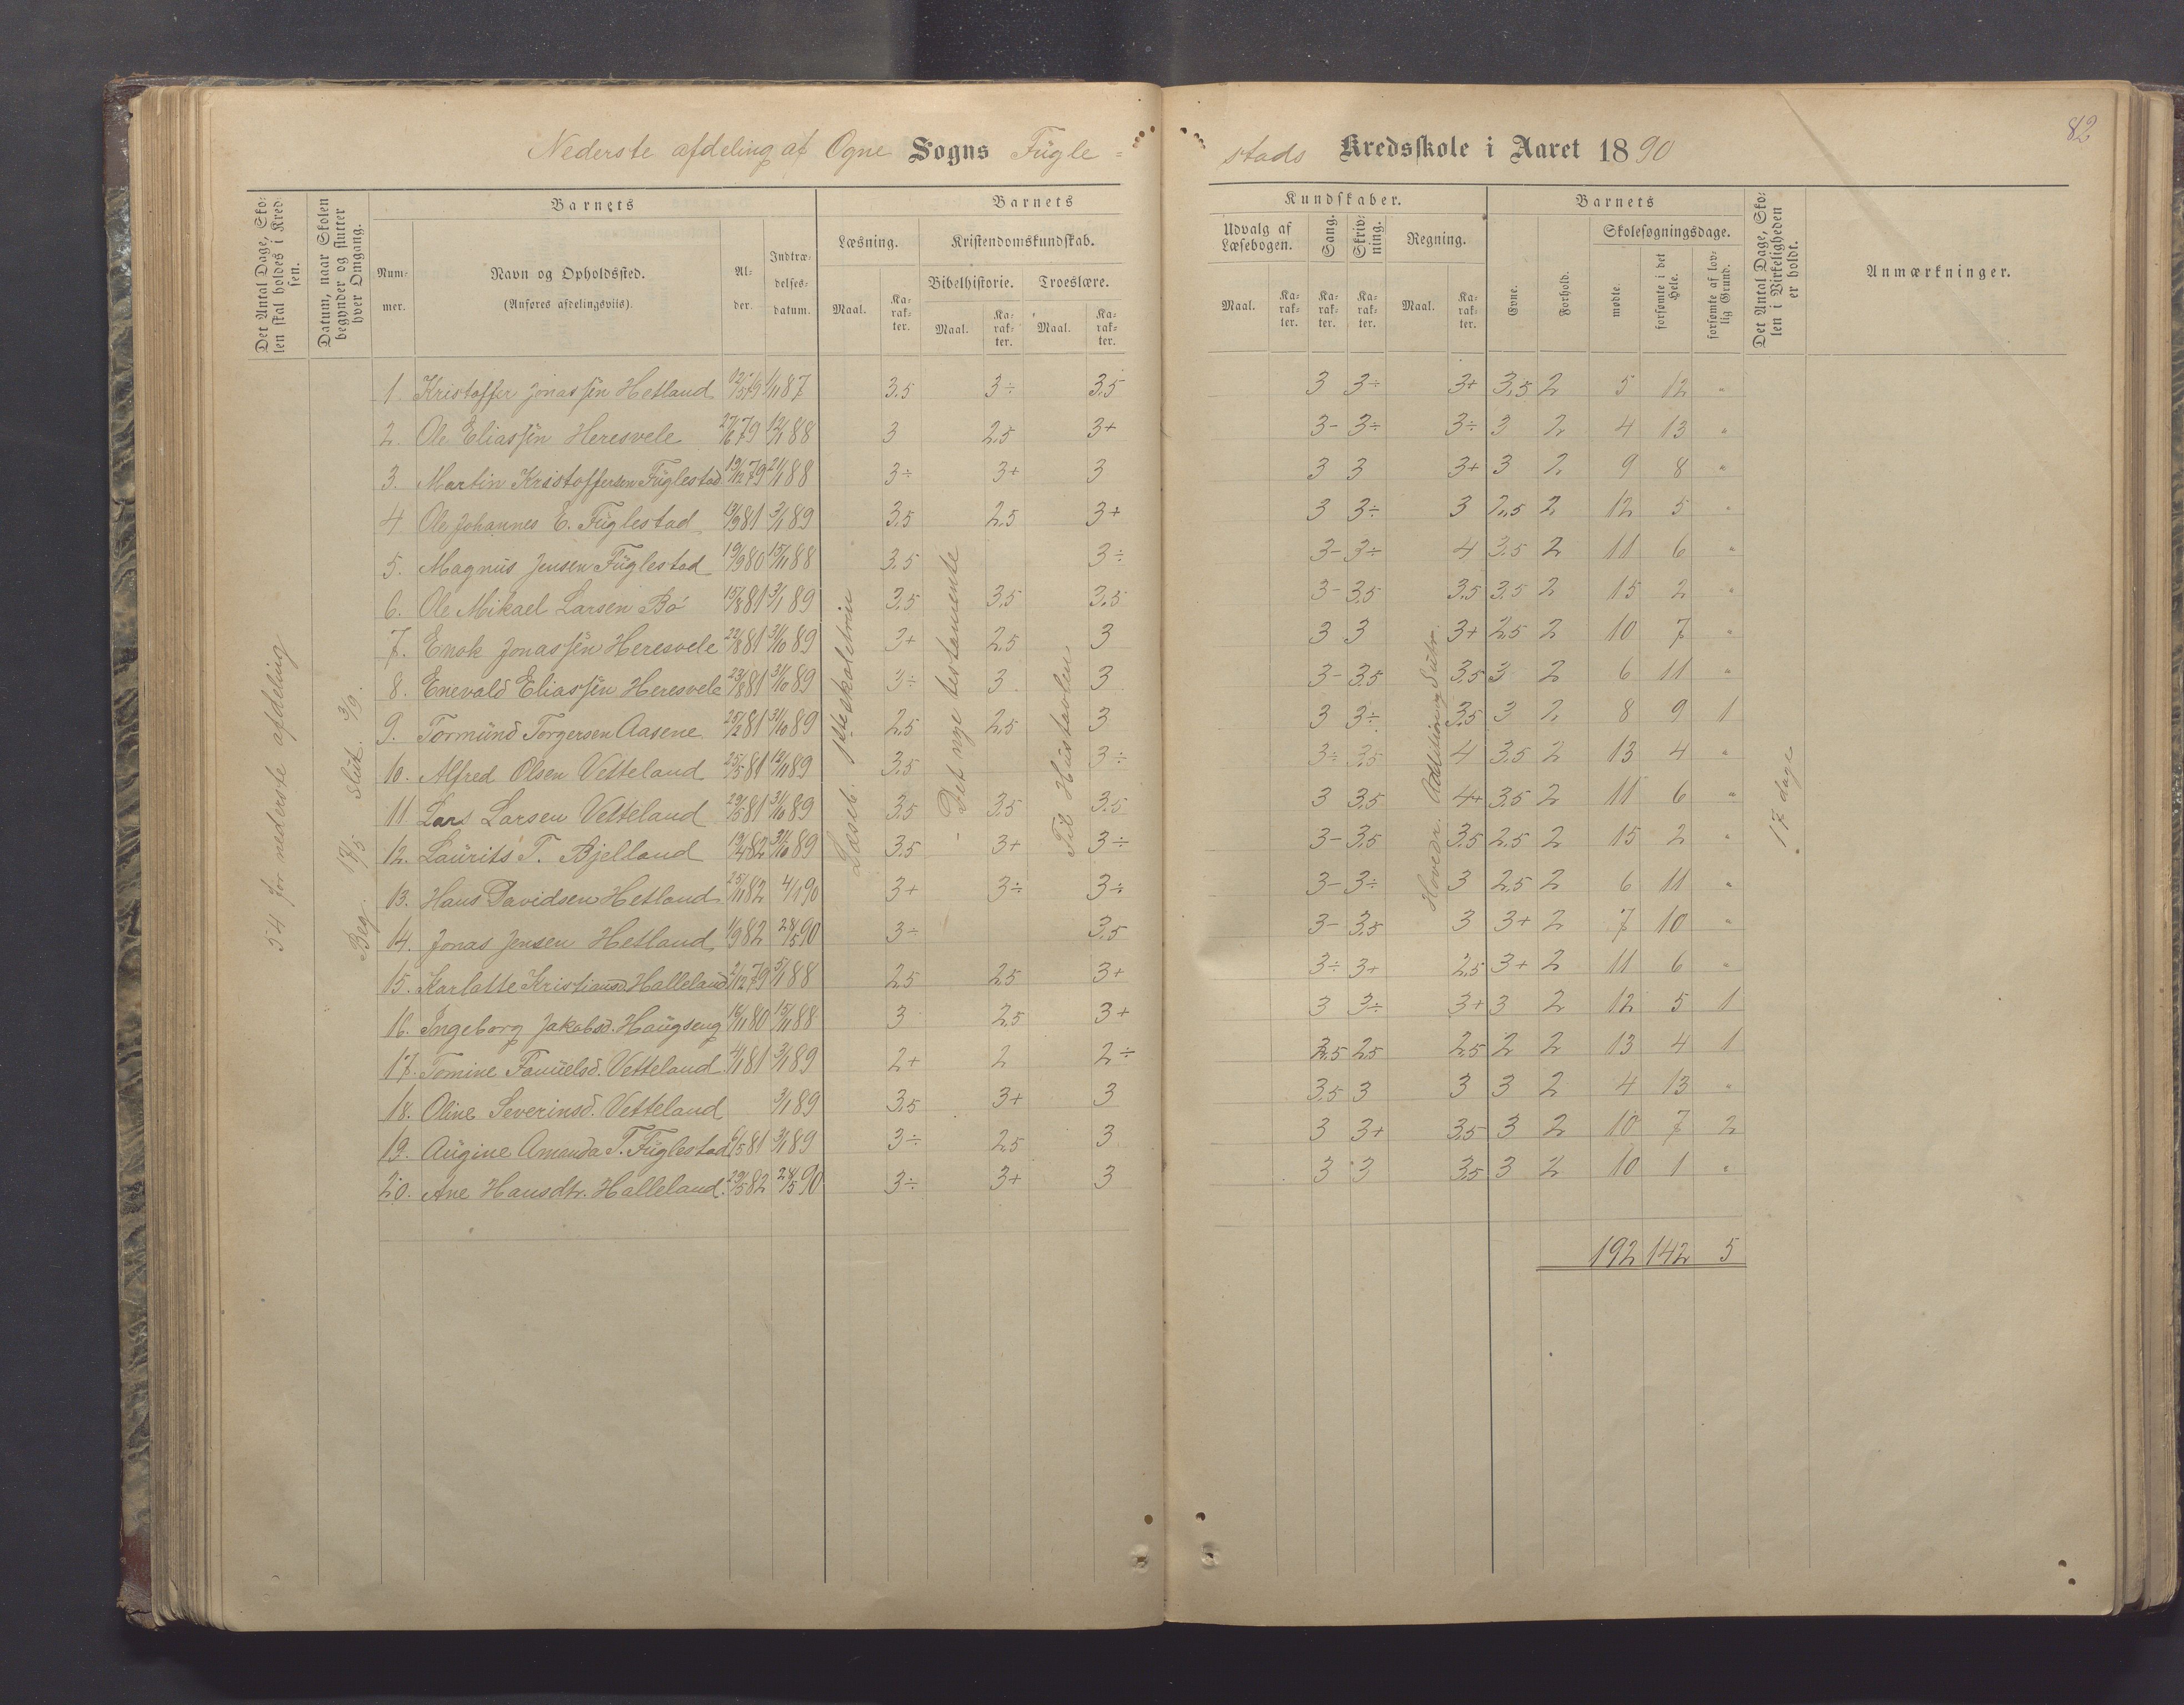 82
Nederste afdeling af Ogne Sogns Fügle=stads Kredsskole i Aaret 1890
Det Antal Dage, Skolen skal holdes i Kredsen.
Datum, naar Skolen begynder og slutter hver Omgang.
Barnets
Nummer.
Navn og Opholdssted.
(Anføres afdelingsviis).
Alder.
Indtrædelsesdatum.
Barnets Kundskaber.
Læsning.
Maal.
Karakter.
Kristendomskundskab.
Bibelhistorie.
Maal.
Karakter.
Troeslære.
Maal.
Karakter.
Udvalg af Læsebogen.
Maal.
Karakter.
Sang.
Karakter.
Skrivning.
Karakter.
Regning.
Maal.
Karakter.
Barnets
Evne.
Forhold.
Skolesøgningsdage.
mødte.
forsømte i det Hele.
forsømte af lovlig Grund.
Det Antal Dage, Skolen i Virkeligheden er holdt.
Anmærkninger.
54 for nederste afdeling
Beg. 18/5 Slut. 3/9.
Læseb. 1ste skoletrin
Det nye testamente
Til Hustavlen
Hovedr. Addition og Subtr.
17 dage
1. Kristoffer Jonassen Hetland 87 3.5 3÷ 3.5 3 3÷ 3+ 3.5 2 5 12 "
2. Ole Eliassen Heresvele 27/6 79 12/1 88 3 2.5 3+ 3- 3÷ 3÷ 3 2 4 13 "
3. Martin Kristoffersen Füglestad 19/12 79 2/1 88 3÷ 3+ 3 3 3 3+ 3 2 9 8 "
4 Ole Johannes E. Füglestad 19/9 81 3/1 89 3.5 2.5 3+ 3 3÷ 3 2.5 2 12 5 "
5. Magnus Jensen Füglestad 19/9 80 15/11 88 3.5 3÷ 3- 3÷ 4 3.5 2 11 6 "
6. Ole Mikael Larsen Bø 15/8 81 3/1 89 3.5 3.5 3.5 3- 3.5 3.5 3.5 2 15 2 "
7. Enok Jonassen Heresvele 22/8 81 31/10 89 3+ 2.5 3 3 3 3+ 2.5 2 10 7 "
8. Enevald Eliassen Heresvele 23/8 81 31/10 89 3÷ 3 3 3- 3.5 3.5 3 2 6 11 "
9. Tormünd Torgersen Aasene 25/2 81 31/10 89 2.5 2.5 3 3 3÷ 3.5 3 2 8 9 1
10. Alfred Olsen Vetteland 25/5 81 12/11 89 3.5 3÷ 3÷ 3.5 4 3.5 2 13 4 "
11 Lars Larsen Vetteland 29/5 81 31/10 89 3.5 3.5 3.5 3 3.5 4+ 3.5 2 11 6 "
12. Laürits T. Bjelland 19/4 82 31/10 89 3.5 3+ 3÷ 3- 3.5 3.5 2.5 2 15 2 "
13. Hans Davidsen Hetland 25/1 82 4/1 90 3+ 3÷ 3÷ 3- 3÷ 3 2.5 2 6 11 "
14. Jonas Jensen Hetland 1/9 82 28/5 90 3÷ 3.5 3- 3.5 3 3+ 2 7 10 "
15. Karlatte Kristiansd. Halleland 2/12 79 5/1 88 2.5 2.5 3+ 3÷ 3+ 2.5 3+ 2 11 6 "
16. Ingeborg Jakobsd. Haugseng 16/11 80 15/11 88 3 2.5 3+ 3 3÷ 3+ 3 2 12 5 1
17. Tomine Samuelsd. Vetteland 4/1 81 3/1 89 2+ 2 2÷ 3.5 2.5 2.5 2 2 13 4 1
18. Oline Severinsd. Vetteland 3/1 89 3.5 3+ 3 3.5 3 3 3 2 4 13 "
19. Augine Amanda T. Füglestad 6/5 81 3/1 89 3÷ 2.5 3 3 3+ 3.5 3 2 10 7 2
20. Ane Hansdtr. Halleland 29/5 82 28/5 90 3÷ 3+ 3 3 3 3.5 3 2 10 1 "
192 142 5